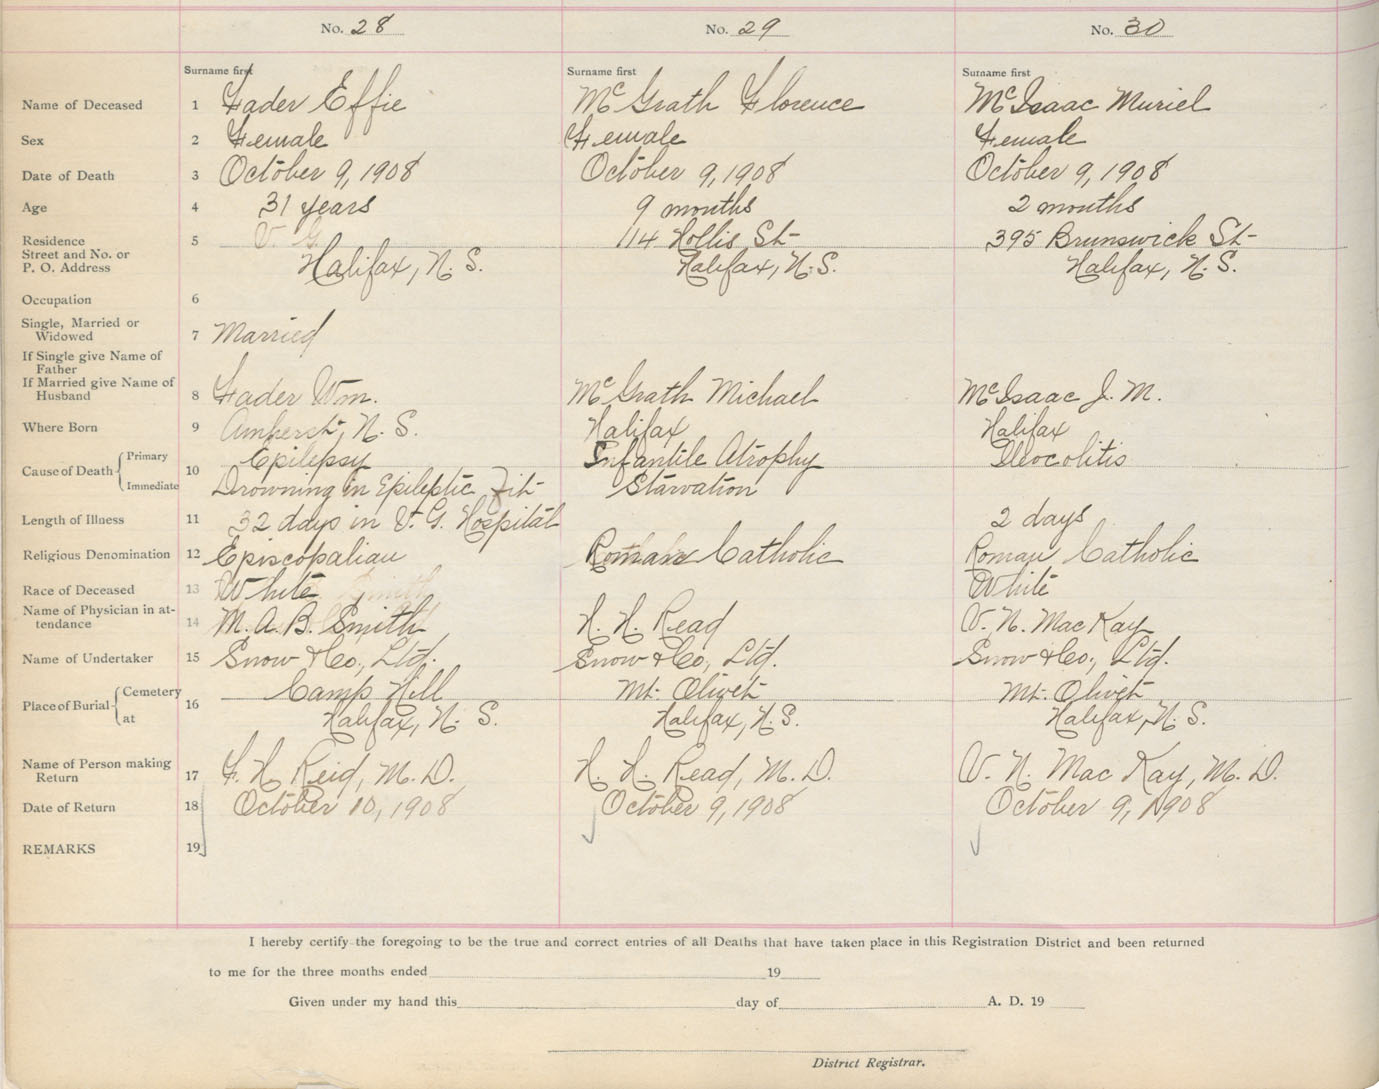 No. 28 No. 29 No. 30
Surname first Surname first Surname first
Name of Deceased 1 Fader Effie McGrath Florence McIsaac Muriel
Sex 2 Female Female Female
Date of Death 3 October 9, 1908 October 9, 1908 October 9, 1908
Age 4 31 years 9 months 2 months
Residence 5 V. G. 114 Hollis St- 395 Brunswick St-
Street and No. or
P. O. Address Halifax, N. S. Halifax, N. S. Halifax, N. S.
Occupation 6
Single, Married or
Widowed 7 Married
If Single give Name of
Father
If Married give Name of
Husband 8 Fader Wm. McGrath Michael McIsaac J. M.
Where Born 9 Amherst, N. S. Halifax Halifax
Cause of Death Primary 10 Epilepsy Infantile Atrophy Ileocolitis
Immediate Drowning in Epileptic Fit Starvation
Length of Illness 11 32 days in V. G. Hospital 2 days
Religious Denomination 12 Episcopalian Roman Catholic Roman Catholic
Race of Deceased 13 White White
Name of Physician in at-
tendance 14 M. A. B. Smith H. H. Read V. N. MacKay
Name of Undertaker 15 Snow & Co., Ltd. Snow & Co., Ltd. Snow & Co., Ltd.
Place of Burial Cemetery 16 Camp Hill Mt. Olivet Mt. Olivet
at Halifax, N. S. Halifax, N. S. Halifax, N. S.
Name of Person making
Return 17 F. H. Reid, M. D. H. H. Read, M. D. V. N. MacKay, M. D.
Date of Return 18 October 10, 1908 October 9, 1908 October 9, 1908
REMARKS 19
I hereby certify the foregoing to be the true and correct entries of all Deaths that have taken place in this Registration District and been returned
to me for the three months ended 19
Given under my hand this day of A. D. 19
District Registrar.